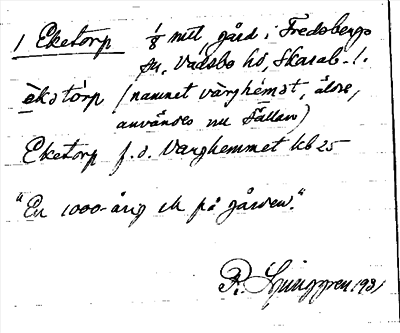 1 Eketorp 1/8 mtl, gård i Fredsbergs
sn, Vadsbo hd, Skarab. l.
èkatòrp (namnet vàrghémət, äldre,
användes nu sällan)
Eketorp f.d. Varghemmet kb 25
"En 1000-årig ek på gården."
R. Ljunggren 1931